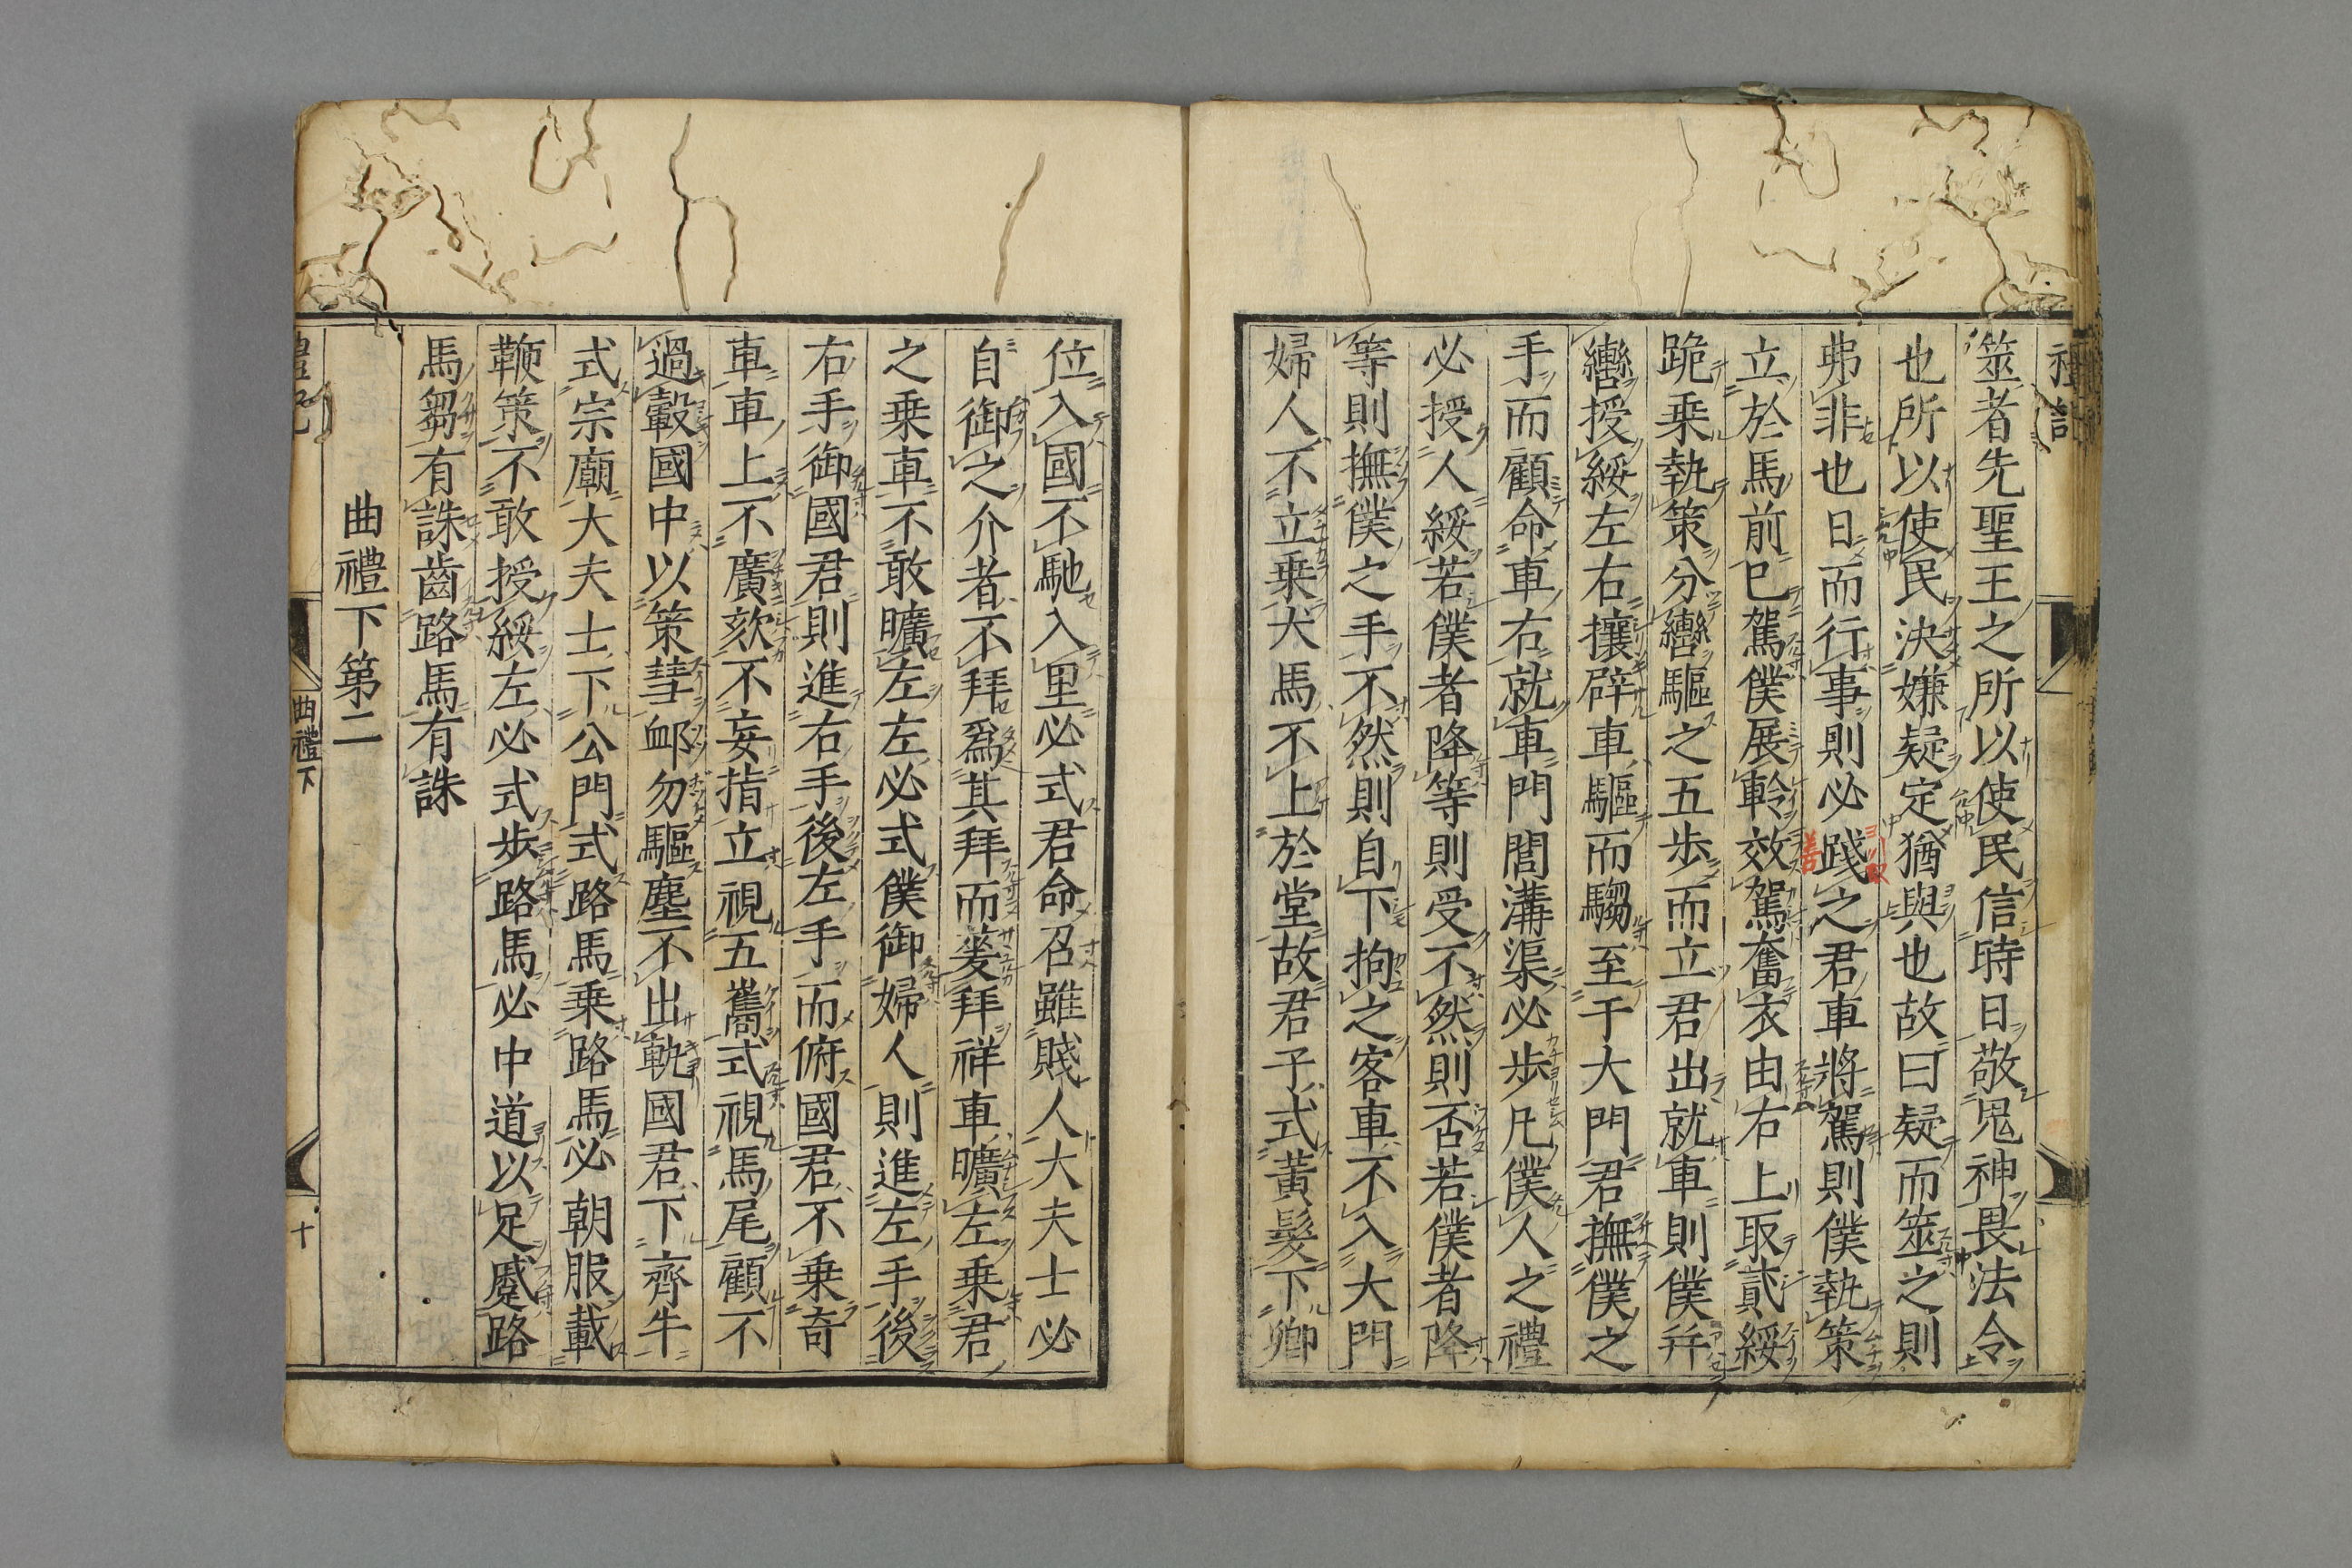 筮者先聖王之所以使民信時日敬鬼神畏法令
也所以使民決嫌疑定猶與也故曰疑而筮之則
弗非也日而行事則必踐之君車將駕則僕執策
立於馬前已駕僕展軨效駕奮衣由右上取貳綏
跪乗執策分轡驅之五歩而立君出就車則僕幷
轡授綏左右攘辟車驅而騶至于大門君撫僕之
手而顧命車右就車門閭溝渠必歩凡僕人之禮
必授人綏若僕者降等則受不然則否若僕者降
等則撫僕之手不然則自下拘之客車不入大門
婦人不立乗犬馬不上於堂故君子式黃髮下卿
位入國不馳入里必式君命召雖賤人大夫士必
自御之介者不拜爲其拜而蓌拜祥車曠左乗君
之乗車不敢曠左左必式僕御婦人則進左手後
右手御國君則進右手後左手而俯國君不乗奇
車車上不廣欬不妄指立視五巂式視馬尾顧不
過轂國中以策彗䘏勿驅塵不出軌國君下齊牛
式宗廟大夫士下公門式路馬乗路馬必朝服載
鞭策不敢授綏左必式歩路馬必中道以足蹙路
馬芻有誅齒路馬有誅
曲禮下第二
曲禮下
十